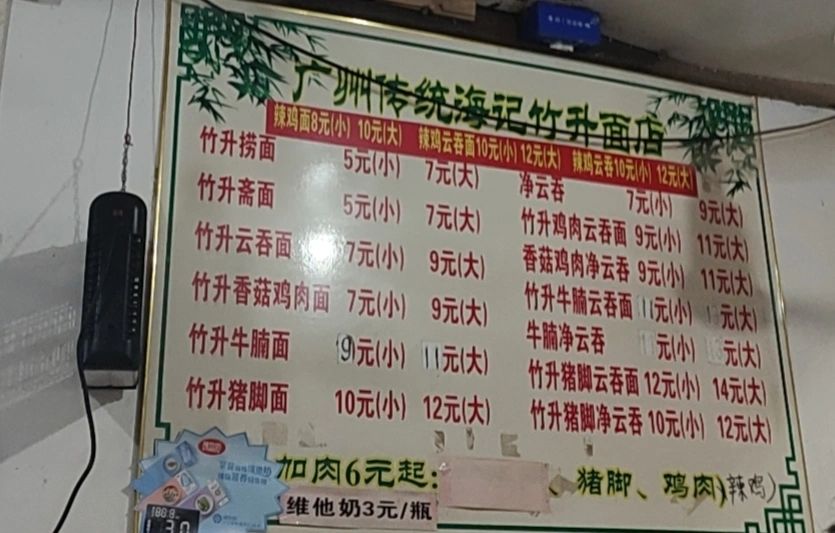 广州传统海记竹升面店
辣鸡面8元(小) 10元(大) 辣鸡云吞面10元(小) 12元(大) 辣鸡云吞10元(小) 12元(大)
竹升捞面 5元(小) 7元(大)
竹升斋面 5元(小) 7元(大)
竹升云吞面 7元(小) 9元(大)
竹升香菇鸡肉面 7元(小) 9元(大)
竹升牛腩面 9元(小) 11元(大)
竹升猪脚面 10元(小) 12元(大)
净云吞 7元(小) 9元(大)
竹升鸡肉云吞面 9元(小) 11元(大)
香菇鸡肉净云吞 9元(小) 11元(大)
竹升牛腩云吞面 11元(小) 元(大)
牛腩净云吞 元(小) 元(大)
竹升猪脚云吞面 12元(小) 14元(大)
竹升猪脚净云吞 10元(小) 12元(大)
加肉6元起: 、猪脚、鸡肉、辣鸡)
维他奶3元/瓶